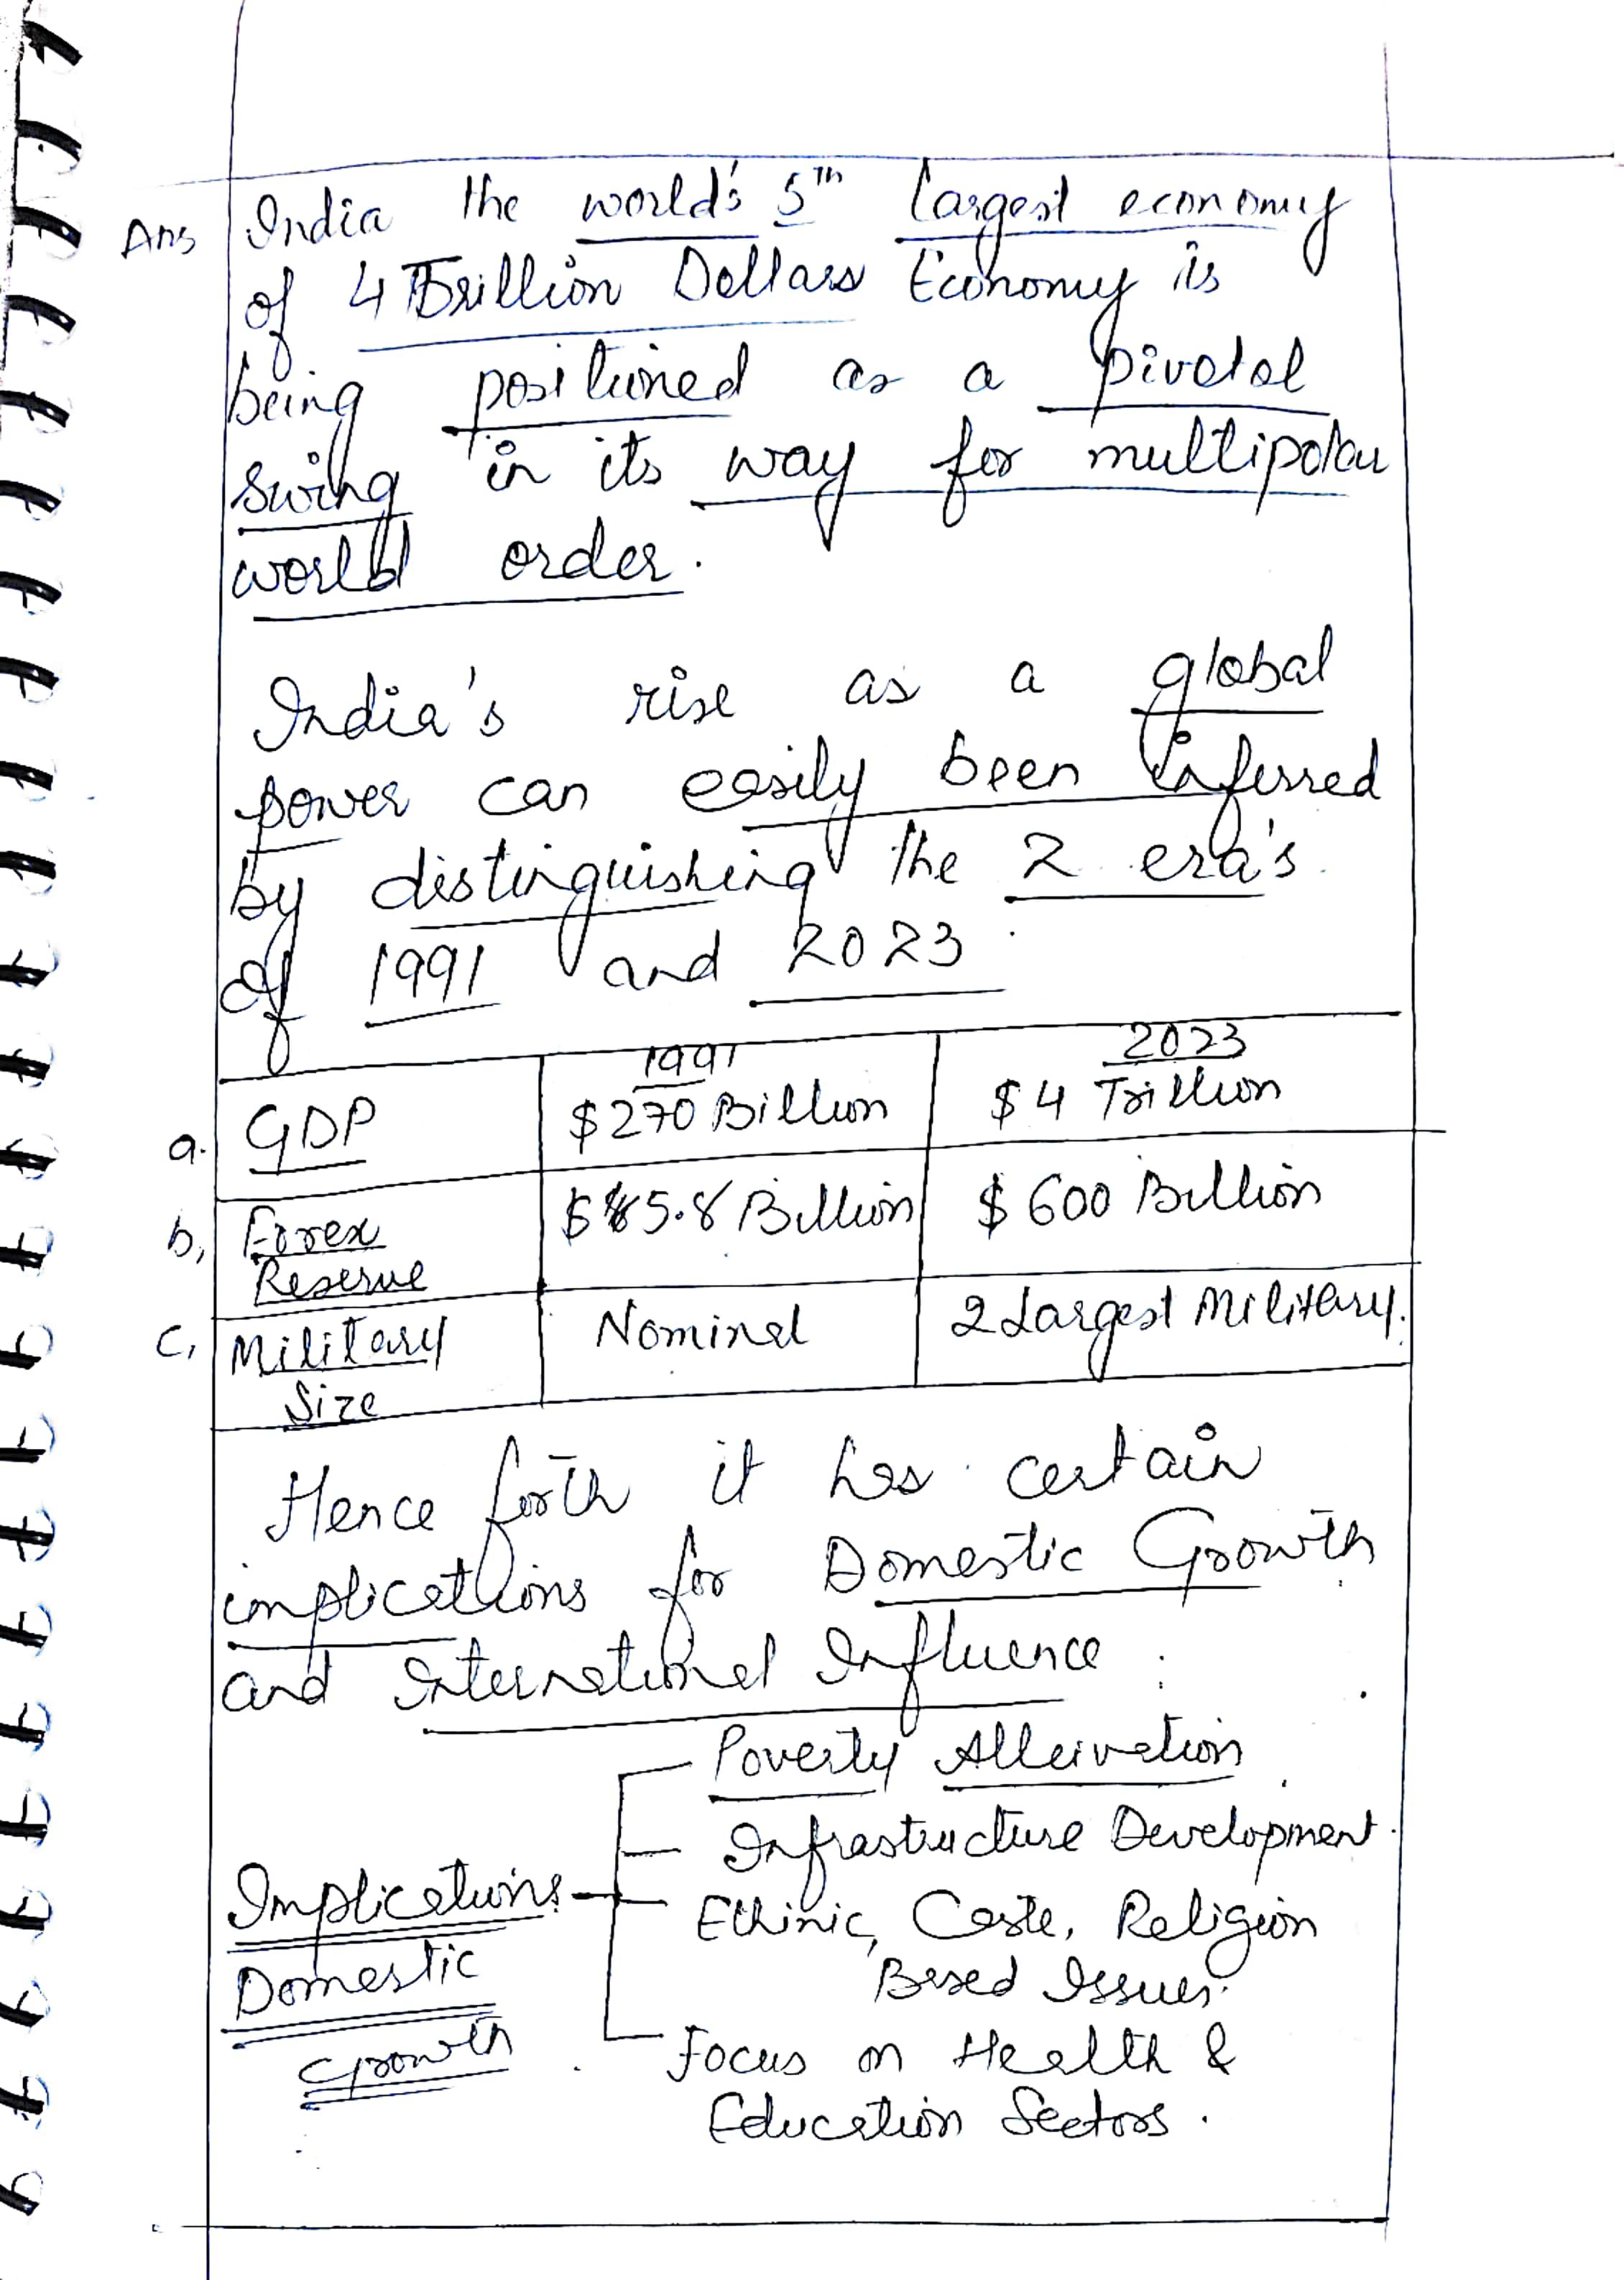 Ans India the world's 5th largest economy
of 4 Trillion Dollars Economy is
being positioned as a pivotal
swing in its way for multipolar
world order.
India's rise as a global
power can easily been inferred
by distinguishing the 2 era's
of 1991 and 2023
1991 2023
a. GDP $270 Billion $4 Trillion
b, Forex Reserve $5.8 Billion $600 Billion
c, Military Size Nominal 2 Largest Military.
Hence forth it has certain
implications for Domestic Growth
and International Influence :
Poverty Alleivation
Infrastructure Development.
Implications Ethinic, Caste, Religion
Based Issues.
Domestic
Growth Focus on Health &
Education Sectors.